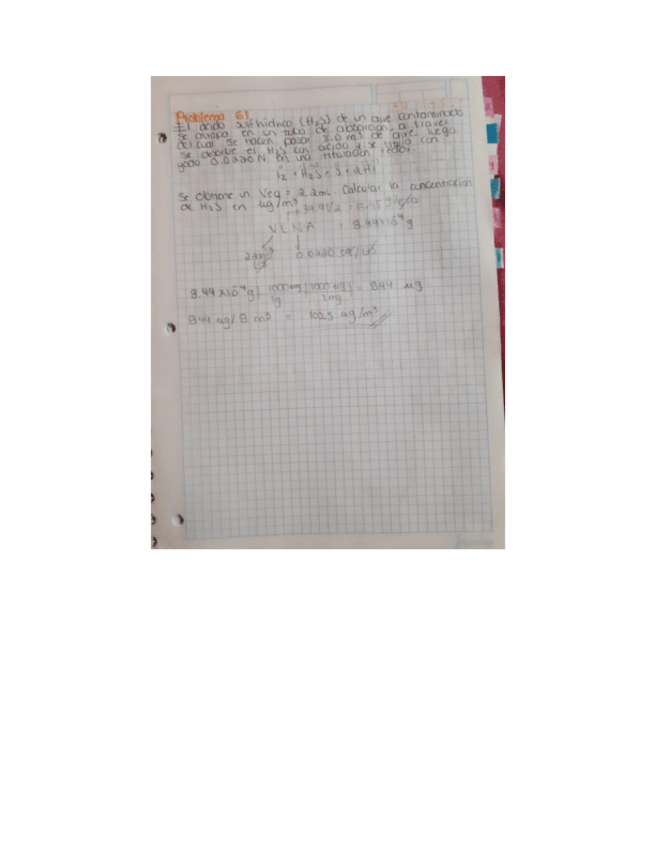 Problema 61
El acido sulfhidrico (H2S) de un aire contaminado
se atrapa en un tubo de absorcion, a traves
del cual se hacen pasar 8.0 m³ de aire, luego
se desorbe el H2S con acido y se titula con
yodo 0.0220 N en una titulacion redox.
I2 + H2S = S + 2HI
Se obtiene un Veq = 2.2mL. Calcular la concentracion
de H2S en ug/m³
V L N A = 8.44x10⁻⁴ g
8.44 x10⁻⁴ g | 1000mg | 1000 ug | = 844 ug
1g 1mg
844 ug/8. m³ = 102.5 ug/m³